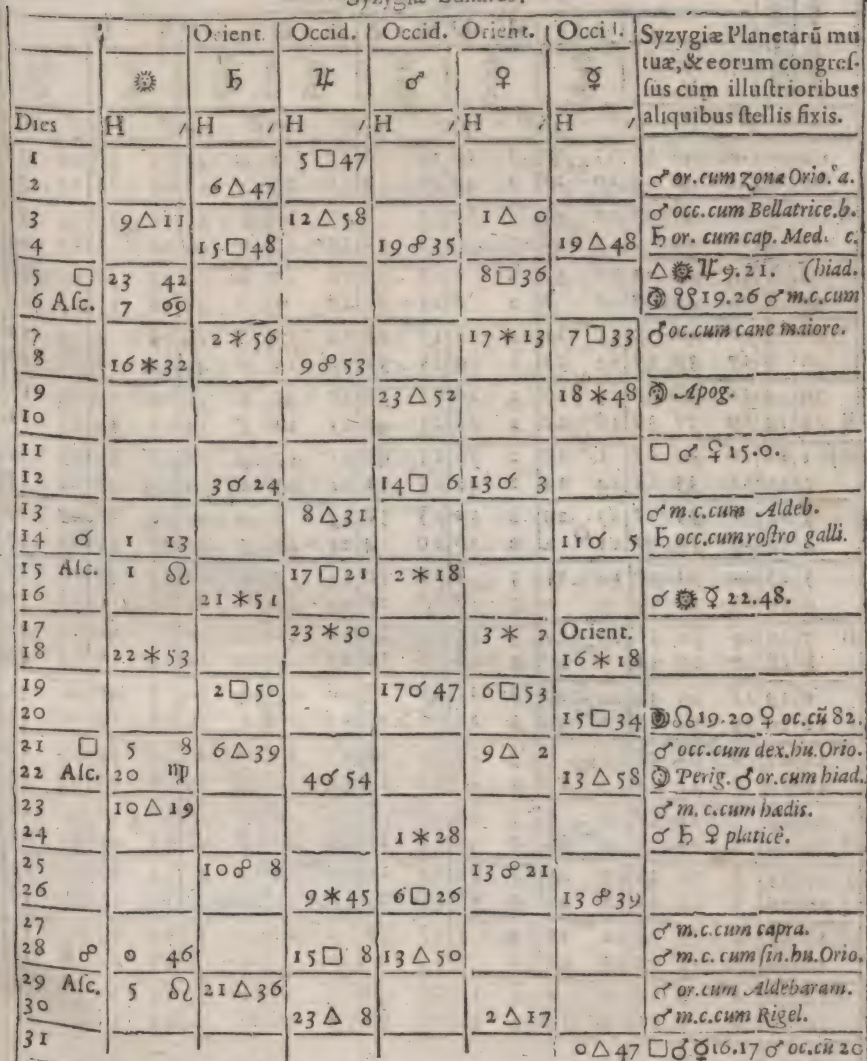 Syzygiæ Lunares.
Orient. Occid. Occid. Orient. Occi l. Syzygiæ Planetarū mu
☉ ♄ ♃ ♂ ♀ ☿ tuæ, & eorum congreſ-
ſus cum illuſtrioribus
Dies H / H / H / H / H / H / aliquibus ſtellis fixis.
1 5 □ 47
2 6 △ 47 ♂ or.cum zona Orio. a.
3 9 △ 11 12 △ 58 1 △ 0 ♂ occ.cum Bellatrice.b.
4 15 □ 48 19 ☍ 35 19 △ 48 ♄ or. cum cap. Med. c.
5 □ 23 42 8 □ 36 △ ☉ ♃ 9.21. (hiad.
6 Aſc. 7 ♋ ☽ ☋ 19.26 ♂ m.c.cum
7 2 ⚹ 56 17 ⚹ 13 7 □ 33 ♂ oc.cum cane maiore.
8 16 ⚹ 32 9 ☍ 53
9 23 △ 52 18 ⚹ 48 ☽ Apog.
10
11 □ ♂ ♀ 15.0.
12 3 ☌ 24 14 □ 6 13 ☌ 3
13 8 △ 31 ♂ m.c.cum Aldeb.
14 ☌ 1 13 11 ☌ 5 ♄ occ.cum roſtro galli.
15 Aſc. 1 ♌ 17 □ 21 2 ⚹ 18
16 21 ⚹ 51 ☌ ☉ ☿ 22.48.
17 23 ⚹ 30 3 ⚹ 2 Orient.
18 22 ⚹ 53 16 ⚹ 18
19 2 □ 50 17 ☌ 47 6 □ 53
20 15 □ 34 ☽ ☊ 19.20 ♀ oc.cū 82.
21 □ 5 8 6 △ 39 9 △ 2 ♂ occ.cum dex.hu.Orio.
22 Aſc. 20 ♍ 4 ☌ 54 13 △ 58 ☽ Perig. ♂ or.cum hiad.
23 10 △ 19 ♂ m. c.cum hædis.
24 1 ⚹ 28 ☌ ♄ ♀ platicè.
25 10 ☍ 8 13 ☍ 21
26 9 ⚹ 45 6 □ 26 13 ☍ 39
27 ♂ m.c.cum capra.
28 ☍ 0 46 15 □ 8 13 △ 50 ♂ m.c. cum ſin.hu.Orio.
29 Aſc. 5 ♌ 21 △ 36 ♂ or.cum Aldebaram.
30 23 △ 8 2 △ 17 ♂ m.c.cum Rigel.
31 0 △ 47 □ ♂ ☿ 16.17 ♂ oc.cū 20